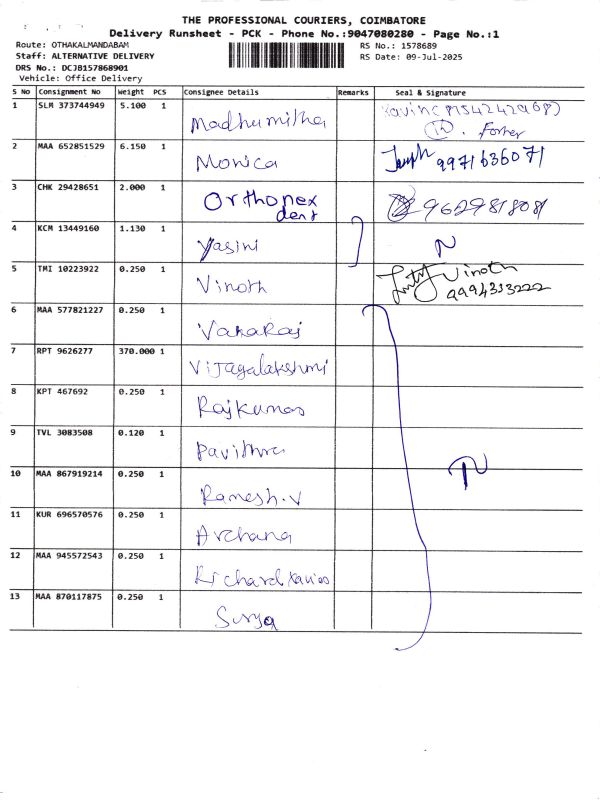 THE PROFESSIONAL COURIERS, COIMBATORE
Delivery Runsheet - PCK - Phone No.:9047080280 - Page No.:1
Route: OTHAKALMANDABAM
Staff: ALTERNATIVE DELIVERY
DRS No.: DCJB157868901
Vehicle: Office Delivery
RS No.: 1578689
RS Date: 09-Jul-2025
S No Consignment No Weight PCS Consignee Details Remarks Seal & Signature
1 SLM 373744949 5.100 1 Madhumitha
2 MAA 652851529 6.150 1 Monica 9971636071
3 CHK 29428651 2.000 1 Orthonex
dent 9629818081
4 KCM 13449160 1.130 1 Yasini N
5 TMI 10223922 0.250 1 Vinoth Vinoth
9994333222
6 MAA 577821227 0.250 1
7 RPT 9626277 370.000 1 Vijayalakshmi
8 KPT 467692 0.250 1 Rajkumar
9 TVL 3083508 0.120 1 Pavithra
10 MAA 867919214 0.250 1 Ramesh.V
11 KUR 696570576 0.250 1 Archana
12 MAA 945572543 0.250 1 Richard Xavier
13 MAA 870117875 0.250 1 Surya